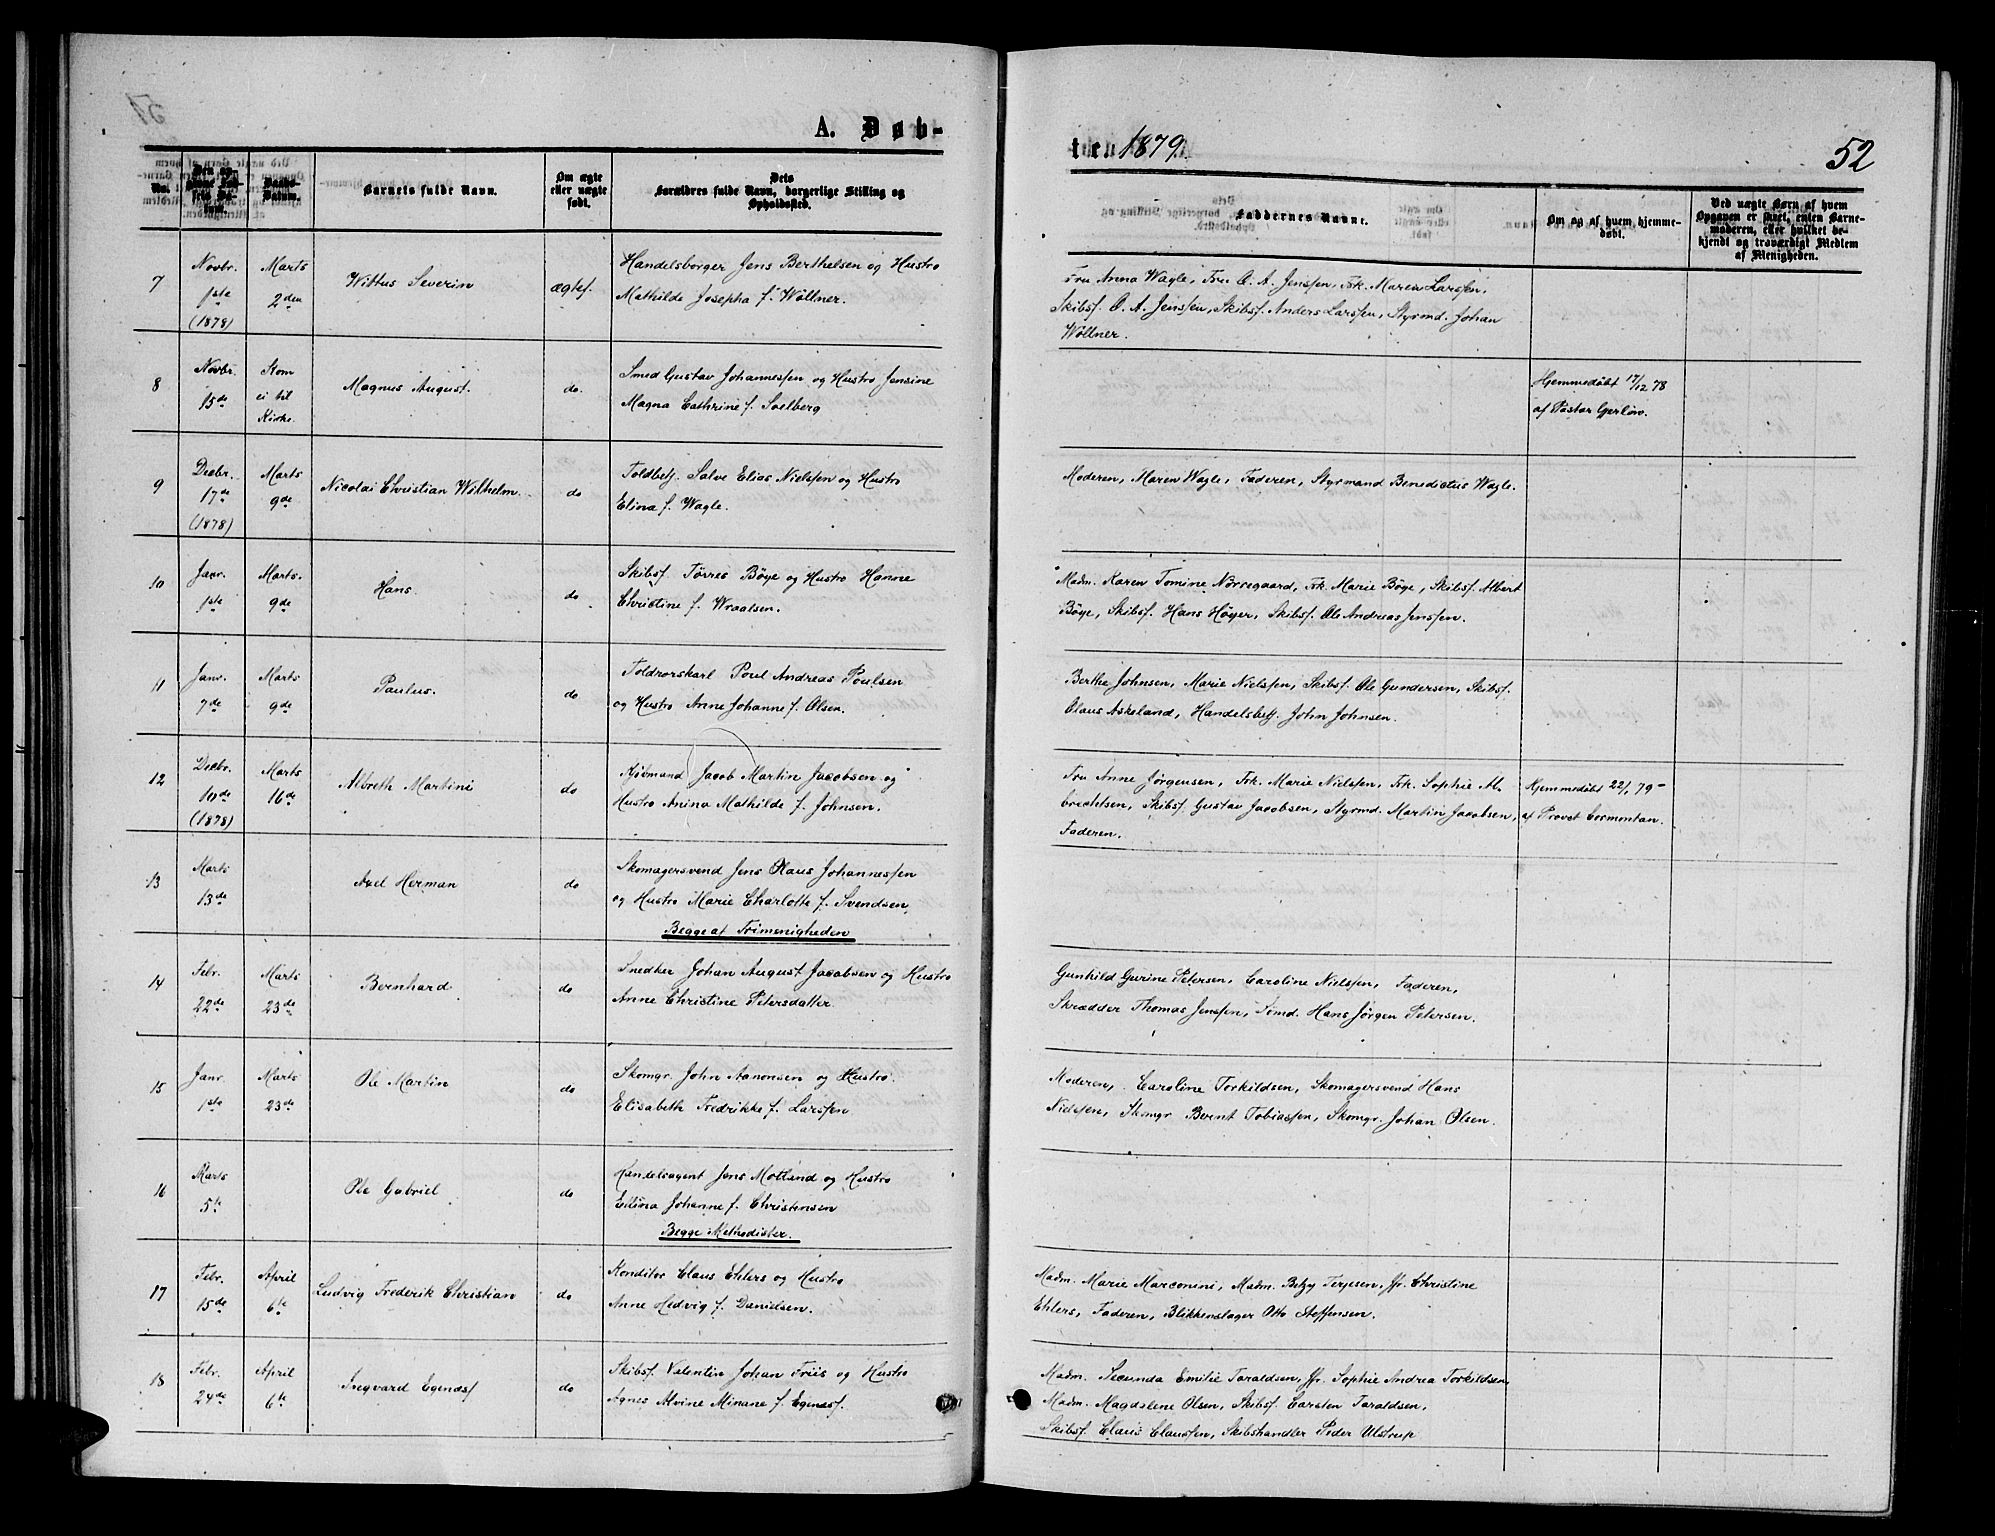 A. Døb-
No.
Den og
Datum.
Daabs-
Datum.
Barnets fulde Navn.
Om ægte
eller uægte
født.
Dets
Forældres fulde Navn, borgerlige Stilling og
Opholdssted.
7
Novbr.
1ste
(1878)
Marts
2den
Wittus Severin
ægtef.
Handelsborger Jens Berthelsen og Hustro
Mathilde Josepha f. Wöllner.
8
Novbr.
15de
Kom
ei til
Kirke.
Magnus August.
do.
Smed Gustav Johannessen og Hustro Jensine
Magna Cathrine f. Solberg
9
Decbr.
17de
(1878)
Marts
9de
Nicolai Christian Wilhelm.
do
Toldbetj. Salve Elias Nielsen og Hustro
Elina f. Wagle.
10
Janr.
1ste
Marts.
9de
Hans.
do
Skibsf. Törres Böye og Hustro Hanne
Christine f. Wraalsen.
11
Janr.
7de
Marts
9de
Paulus.
do
Toldrorskarl Poul Andreas Poulsen
og Hustro Anne Johanne f. Olsen.
12
Decbr.
10de
(1878)
Marts
16de
Albreth Martini
do
Kjöbmand Jacob Martin Jacobsen og
Hustro Anina Mathilde f. Johnsen.
13
Marts
13de
Axel Herman
do
Skomagersvend Jens Olaus Johannessen
og Hustro Marie Charlotte f. Svendsen,
Begge af Frimenigheden
14
Febr.
22de
Marts
23de
Bernhard
do
Snedker Johan August Jacobsen og Hustro
Anne Christine Petersdatter
15
Janr.
1ste
Marts
23de
Ole Martin
do
Skomgr. John Aanonsen og Hustro.
Elisabeth Fredrikke f. Larssen
16
Marts
5te
Ole Gabriel
do
Handelsagent Jens Motland og Hustro
Elina Johanne f. Christensen
Begge Methodister.
17
Febr.
15de
April
6te
Ludvig Frederik Christian
do
Konditor Claus Ehlers og Hustro
Anne Hedvig f. Danielsen.
18
Febr.
24de
April
6te
Ingvard Egenæs
do
Skibsf. Valentin Johan Friis og Hustro
Agnes Alvine Minane f. Egenæs.
te 1879.
52
Faddernes Navne.
Om og af hvem hjemme-
døbt.
Ved uægte Børn af hvem
Opgaven er skeet, enten Barne-
moderen, eller hvilket be-
kjendt og troværdigt Medlem
af Menigheden.
Fru Anna Wagle, Fru O. A. Jenssen, Frk. Maren Larssen,
Skibsf. O. A. Jenssen, Skibsf. Anders Larssen, Styrmd. Johan
Wöllner.
Hjemmedöbt 17/12 78
af Pastor Gerlöw.
Moderen, Maren Wagle, Faderen, Styrmand Benedictus Wagle.
Madm. Karen Tomine Nörregaard, Frk. Marie Böye, Skibsf. Albert
Böye, Skibsf. Hans Höyer, Skibsf. Ole Andreas Jenssen.
Berthe Johnsen, Marie Nielssen, Skibsf. Ole Gundersen, Skibsf.
Olaus Askeland, Handelsbetj. John Johnsen.
Fru Anne Jørgensen, Frk. Marie Nielsen, Frk. Sophie Al-
brechtsen, Skibsf. Gustav Jacobsen, Styrmd. Martin Jacobsen,
Faderen.
Hjemmedöbt 22/1 79
af Provst Cormontan.
Gunhild Gurine Petersen, Caroline Nielssen, Faderen,
Skrædder Thomas Jenssen, Tömd. Hans Jørgen Petersen.
Moderen, Caroline Torkildsen, Skomagersvend Hans
Nielssen, Skomgr Bernt Tobiassen, Skomgr. Johan Olsen.
Madm. Marie Marconini, Madm. Betzy Terjesen, Jfr. Christine
Ehlers, Faderen, Blikkenslager Otto Steffensen.
Madm. Secunda Emilie Taraldsen, Jfr. Sophie Andrea Torkildsen,
Madm. Magdalene Olsen, Skibsf. Carsten Taraldsen,
Skibsf. Claus Claussen, Skibshandler Peder Ulstrup